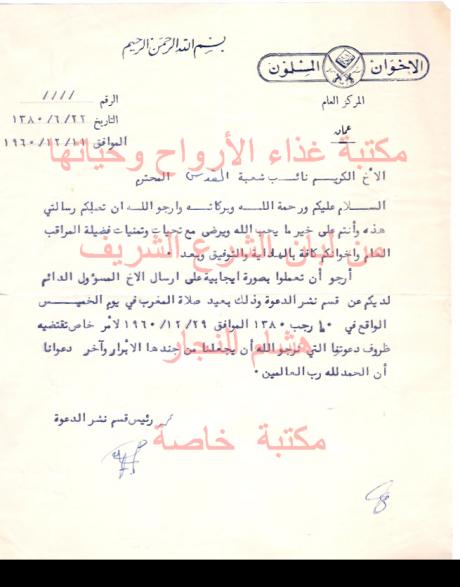 بسم الله الرحمن الرحيم
الإخوان المسلمون
المركز العام
عمان
الرقم ////
التاريخ ١٣٨٠/٦/٢٢
الموافق ١٩٦٠/١٢/١١
مكتبة غذاء الأرواح وحياتها
الأخ الكريم نائب شعبة القدس المحترم
السلام عليكم ورحمة الله وبركاته وارجو الله ان تصلكم رسالتي
هذه وأنتم على خير ما يحب الله ويرضى مع تحيات وتمنيات فضيلة المراقب
العام واخوانكم كافة بالهداية والتوفيق وبعد
من لبنان الشرع الشريف
أرجو أن تعملوا بصورة ايجابية على ارسال الاخ المسؤول الدائم
لديكم عن قسم نشر الدعوة وذلك بعيد صلاة المغرب في يوم الخميس
الواقع في ١٠ رجب ١٣٨٠ الموافق ١٩٦٠/١٢/٢٩ لأمر خاص تقتضيه
ظروف دعوتنا التي نرجو الله أن يجعلنا من جندها الابرار وآخر دعوانا
هشام للنجار
أن الحمد لله رب العالمين ٠
رئيس قسم نشر الدعوة
مكتبة خاصة